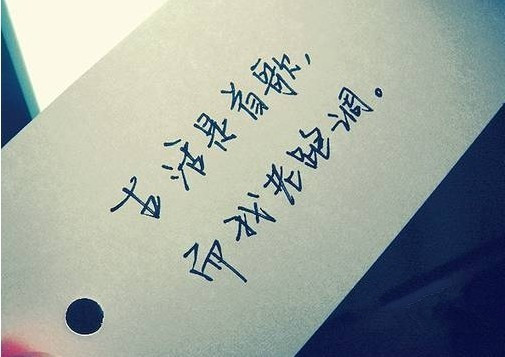 生活是首歌、
而我老跑调。